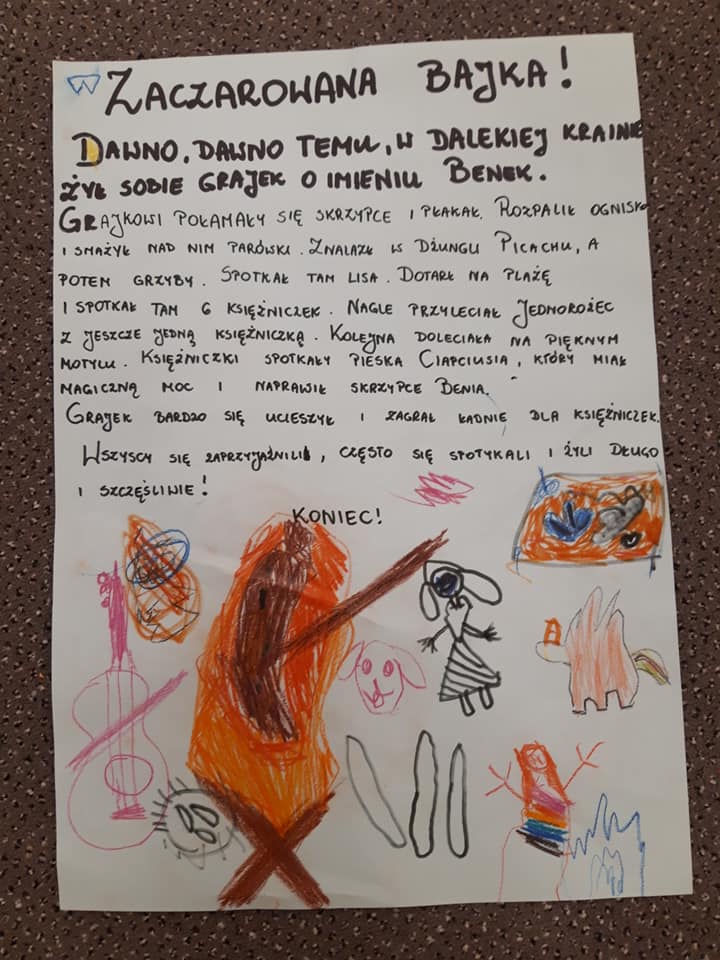 ZACZAROWANA BAJKA!
DAWNO, DAWNO TEMU, W DALEKIEJ KRAINIE
ŻYŁ SOBIE GRAJEK O IMIENIU BENEK.
GRAJKOWI POŁAMAŁY SIĘ SKRZYPCE I PŁAKAŁ. ROZPALIŁ OGNISKO
I SMAŻYŁ NAD NIM PARÓWKI. ZNALAZŁ W DŻUNGLI PICACHU, A
POTEM GRZYBY. SPOTKAŁ TAM LISA. DOTARŁ NA PLAŻĘ
I SPOTKAŁ TAM 6 KSIĘŻNICZEK. NAGLE PRZYLECIAŁ JEDNOROŻEC
Z JESZCZE JEDNĄ KSIĘŻNICZKĄ. KOLEJNA DOLECIAŁA NA PIĘKNYM
MOTYLU. KSIĘŻNICZKI SPOTKAŁY PIESKA CIAPCIUSIA, KTÓRY MIAŁ
MAGICZNĄ MOC I NAPRAWIŁ SKRZYPCE BENIA.
GRAJEK BARDZO SIĘ UCIESZYŁ I ZAGRAŁ ŁADNIE DLA KSIĘŻNICZEK.
WSZYSCY SIĘ ZAPRZYJAŹNILI, CZĘSTO SIĘ SPOTYKALI I ŻYLI DŁUGO
I SZCZĘŚLIWIE!
KONIEC!